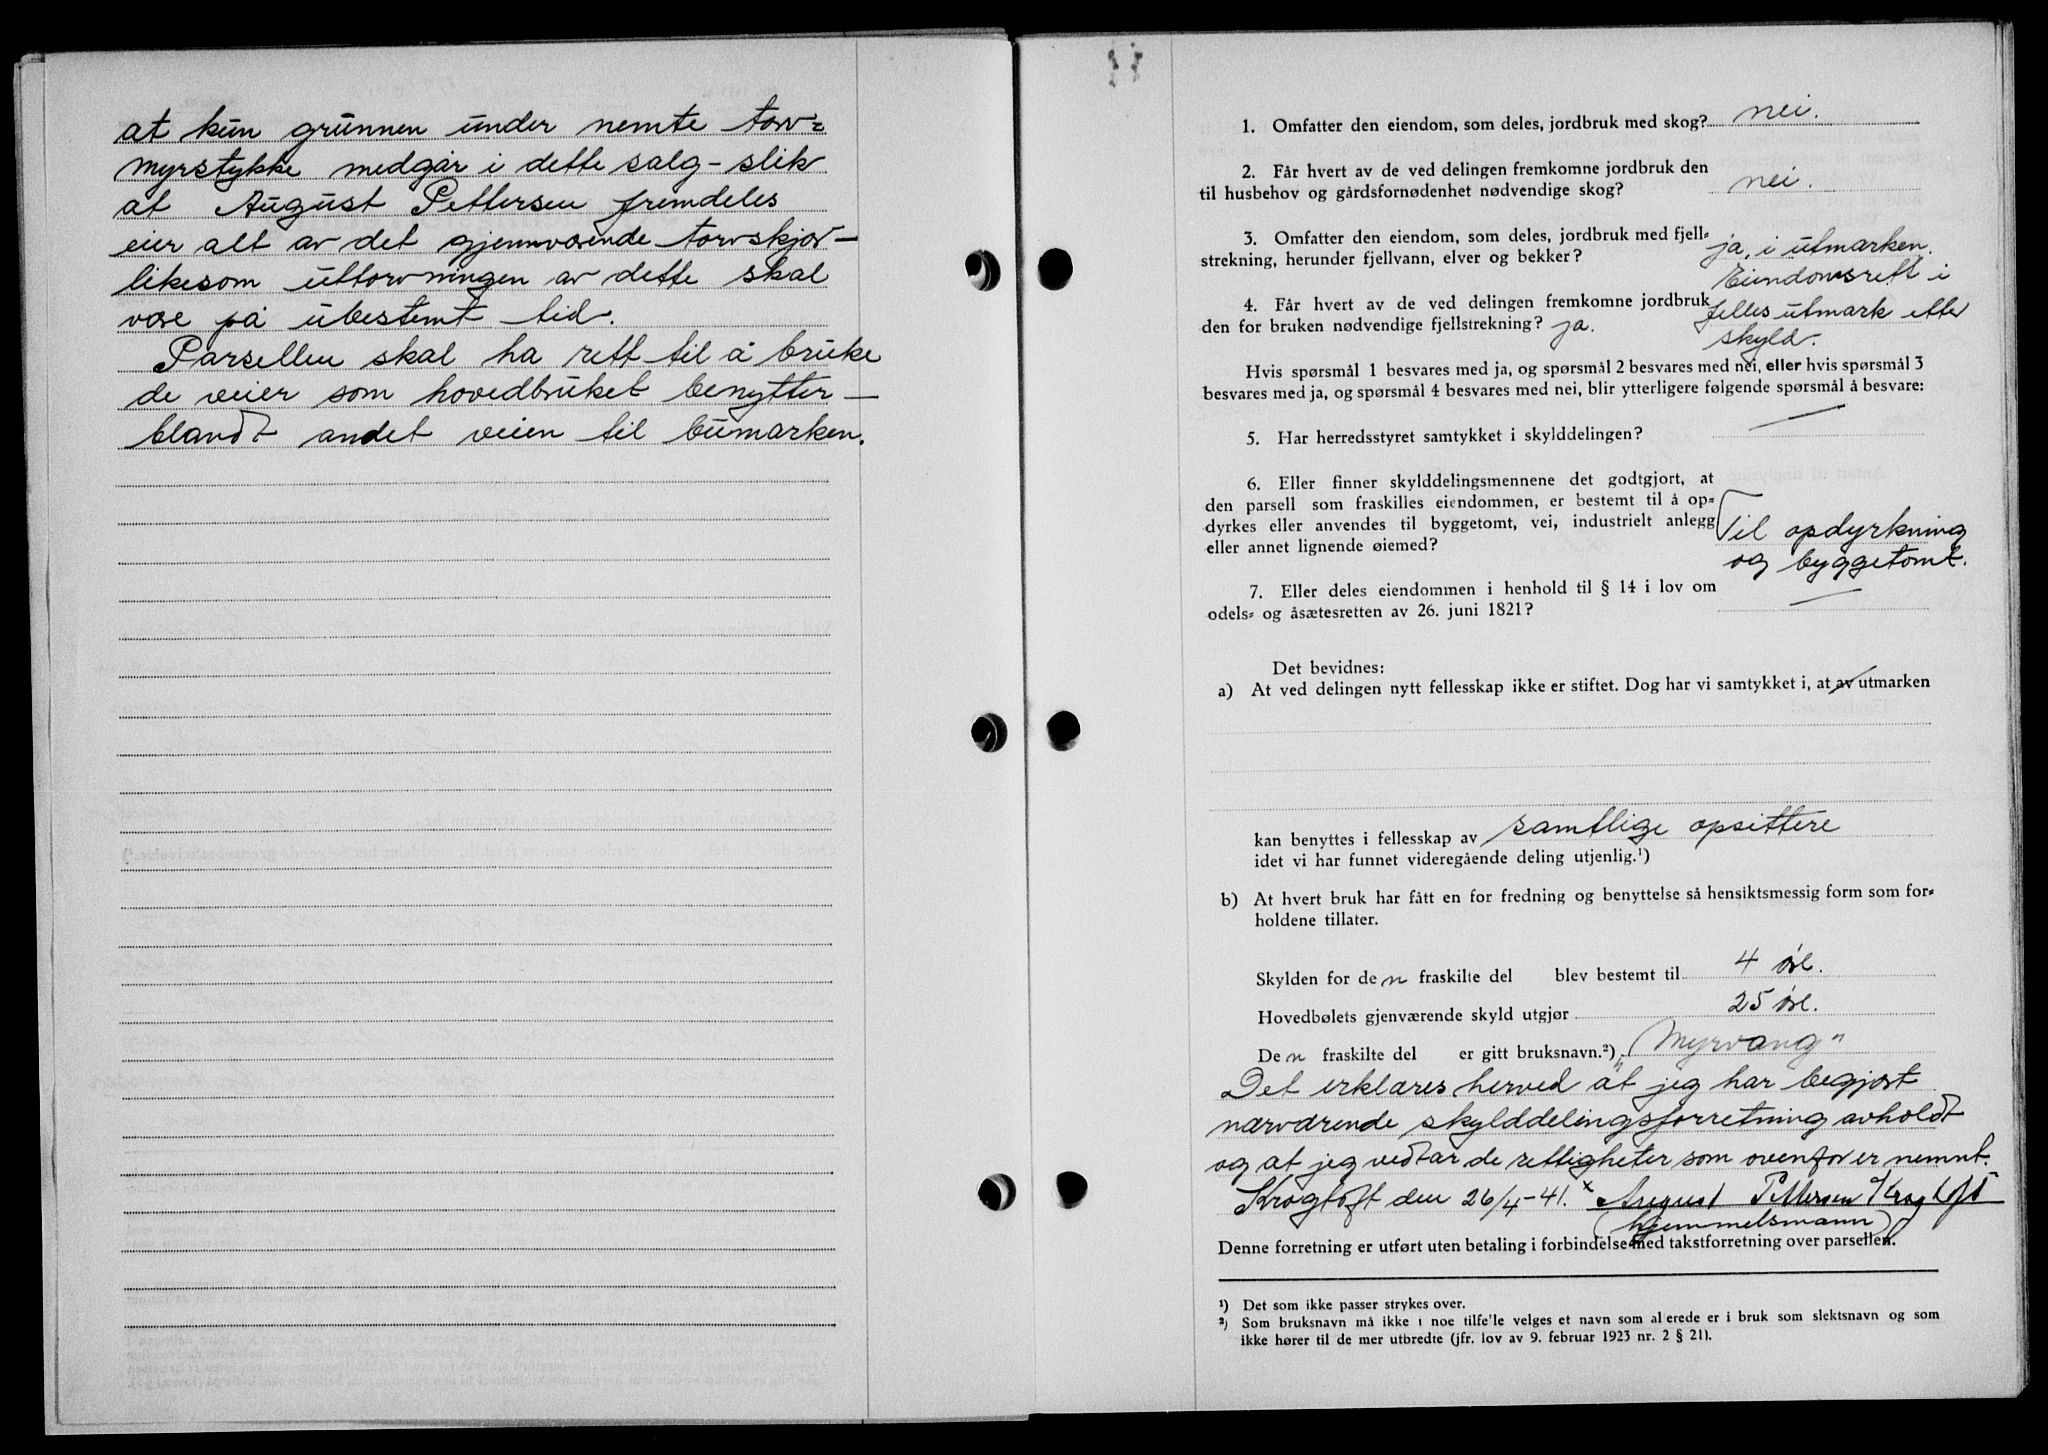 at kun grunnen under nemte torv=
myrstykke medgår i dette salg - slik
at August Pettersen fremdeles
eier alt av det gjennværende torvskjær -
likesom uttorvningen av dette skal
være på ubestemt tid.
Parsellen skal ha rett til å bruke
de veier som hovedbruket benytter -
blandt andet veien til bumarken.
1. Omfatter den eiendom, som deles, jordbruk med skog? nei.
2. Får hvert av de ved delingen fremkomne jordbruk den
til husbehov og gårdsfornødenhet nødvendige skog? nei.
3. Omfatter den eiendom, som deles, jordbruk med fjell=
strekning, herunder fjellvann, elver og bekker? ja, i utmarken.
Eiendomsrett i
4. Får hvert av de ved delingen fremkomne jordbruk felles utmark etter
den for bruken nødvendige fjellstrekning? ja. skyld.
Hvis spørsmål 1 besvares med ja, og spørsmål 2 besvares med nei, eller hvis spørsmål 3
besvares med ja, og spørsmål 4 besvares med nei, blir ytterligere følgende spørsmål å besvare:
5. Har herredsstyret samtykket i skylddelingen? —
6. Eller finner skylddelingsmennene det godtgjort, at
den parsell som fraskilles eiendommen, er bestemt til å op=
dyrkes eller anvendes til byggetomt, vei, industrielt anlegg Til opdyrkning
eller annet lignende øiemed? og byggetomt.
7. Eller deles eiendommen i henhold til § 14 i lov om
odels= og åsætesretten av 26. juni 1821? —
Det bevidnes:
a) At ved delingen nytt fellesskap ikke er stiftet. Dog har vi samtykket i, at av utmarken
kan benyttes i fellesskap av samtlige opsittere
idet vi har funnet videregående deling utjenlig.¹)
b) At hvert bruk har fått en for fredning og benyttelse så hensiktsmessig form som for=
holdene tillater.
Skylden for den fraskilte del blev bestemt til 4 øre.
Hovedbølets gjenværende skyld utgjør 25 øre.
Den fraskilte del er gitt bruksnavn.²) „Myrvang"
Det erklæres herved at jeg har begjært
nærværende skylddelingsforretning avholdt
og at jeg vedtar de rettigheter som ovenfor er nemnt.
Krogtoft den 26/4-41. x August Pettersen Krogtoft
(hjemmelsmann)
Denne forretning er utført uten betaling i forbindelse med takstforretning over parsellen.
¹) Det som ikke passer strykes over.
²) Som bruksnavn må ikke i noe tilfelle velges et navn som allerede er i bruk som slektsnavn og som
ikke hører til de mer utbredte (jfr. lov av 9. februar 1923 nr. 2 § 21).